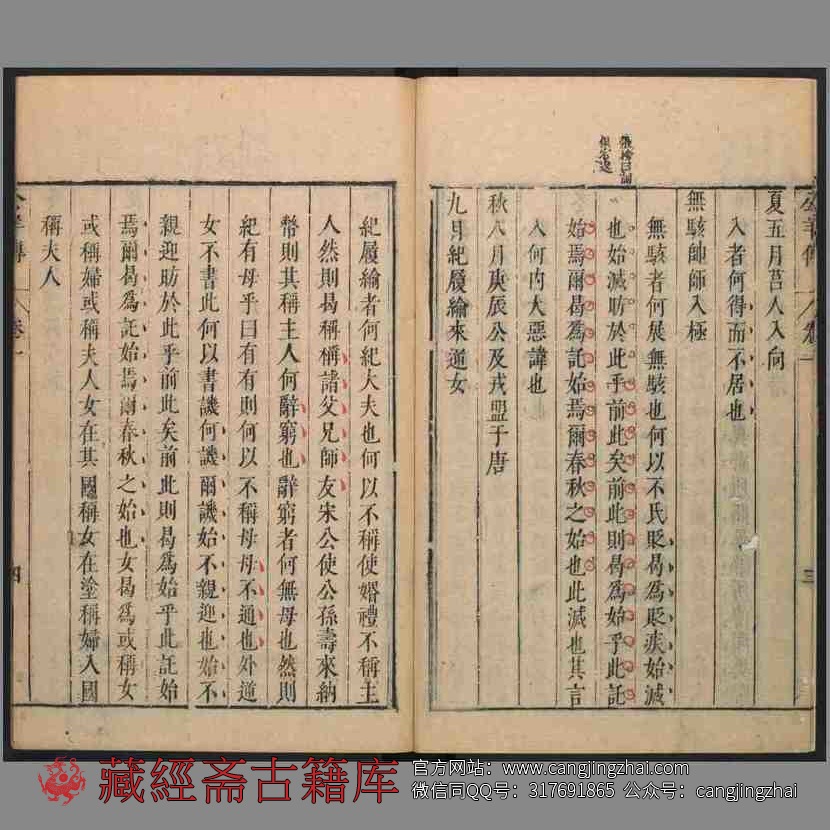 夏五月莒人入向
入者何得而不居也
無駭帥師入極
無駭者何展無駭也何以不氏貶曷為貶疾始滅
也始滅昉於此乎前此矣前此則曷為始乎此託
始焉爾曷為託始焉爾春秋之始也此滅也其言
入何內大惡諱也
秋八月庚辰公及戎盟于唐
九月紀履緰來逆女
公羊傳 卷一 三
紀履緰者何紀大夫也何以不稱使婚禮不稱主
人然則曷稱稱諸父兄師友宋公使公孫壽來納
幣則其稱主人何辭窮也辭窮者何無母也然則
紀有母乎曰有有則何以不稱母母不通也外逆
女不書此何以書譏何譏爾譏始不親迎也始不
親迎昉於此乎前此矣前此則曷為始乎此託始
焉爾曷為託始焉爾春秋之始也女曷為或稱女
或稱婦或稱夫人女在其國稱女在塗稱婦入國
稱夫人
公羊傳 卷一 四
藏經斋古籍库
官方网站：www.cangjingzhai.com
微信同QQ号：317691865 公众号：cangjingzhai